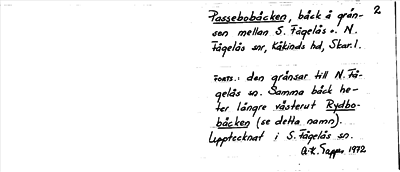 Passebobäcken, bäck å grän- 2
sen mellan S. Fågelås o. N.
Fågelås snr, Kåkinds hd, Skar.l.
FORTS.: den gränsar till N. Få-
gelås sn. Samma bäck he-
ter längre västerut Rydbo-
bäcken (se detta namn).
Upptecknat i S. Fågelås sn.
1972